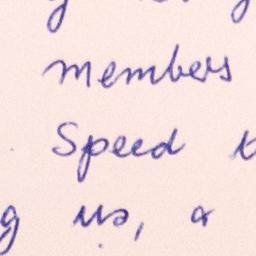 members
Speed
us, a